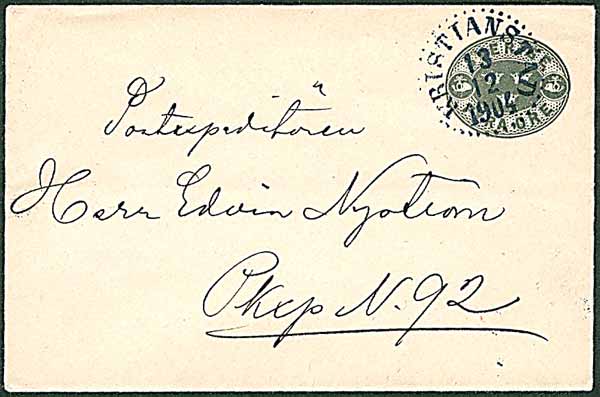 KRISTIANSTAD
13
12
1904
SVERIGE
Postexpeditören
Herr Edvin Nyström
Pkxp N. 92